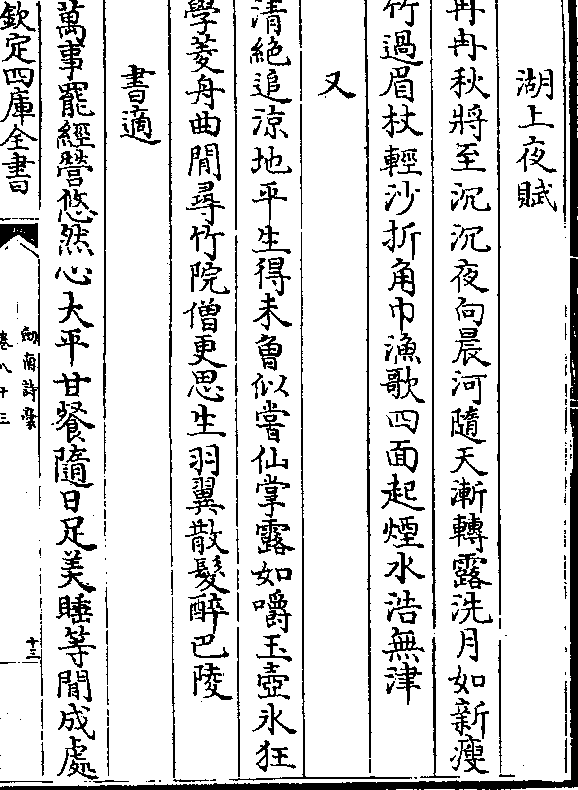 湖上夜賦
冉冉秋將至沉沉夜向晨河隨天漸轉露洗月如新瘦
竹過眉杖輕沙折角巾漁歌四面起煙水浩無津
又
清絶追涼地平生得未曾似嘗仙掌露如嚼玉壺氷狂
學菱舟曲閒尋竹院僧更思生羽翼散髮醉巴陵
書適
萬事罷經營悠然心太平甘餐隨日足美睡等閒成處
欽定四庫全書
劍南詩稾
卷八十三
十三